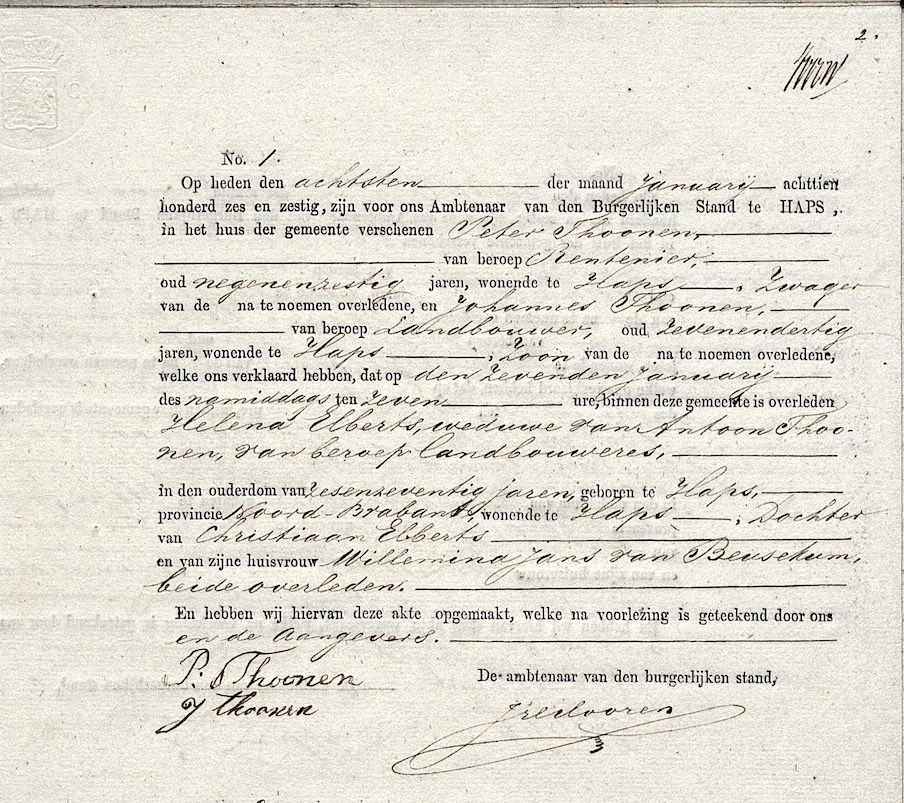 2.
No. 1.
Op heden den achtsten der maand January achttien
honderd zes en zestig, zijn voor ons Ambtenaar van den Burgerlijken Stand te HAPS,
in het huis der gemeente verschenen Peter Thoonen,
van beroep Rentenier,
oud negenenzestig jaren, wonende te Haps ; Zwager
van de na te noemen overledene, en Johannes Thoonen,
van beroep Landbouwer, oud zevenendertig
jaren, wonende te Haps ; Zoon van de na te noemen overledene,
welke ons verklaard hebben, dat op den zevenden January
des namiddags ten zeven ure, binnen deze gemeente is overleden
Helena Elberts, weduwe van Antoon Thoo-
nen, van beroep Landbouweres,
in den ouderdom van zesenzeventig jaren, geboren te Haps,
provincie Noord-Brabant, wonende te Haps ; Dochter
van Christiaan Elberts
en van zijne huisvrouw Willemina Jans van Beusekum,
beide overleden.
En hebben wij hiervan deze akte opgemaakt, welke na voorlezing is geteekend door ons
en de Aangevers.
P. Thoonen
J Thoonen
De ambtenaar van den burgerlijken stand,